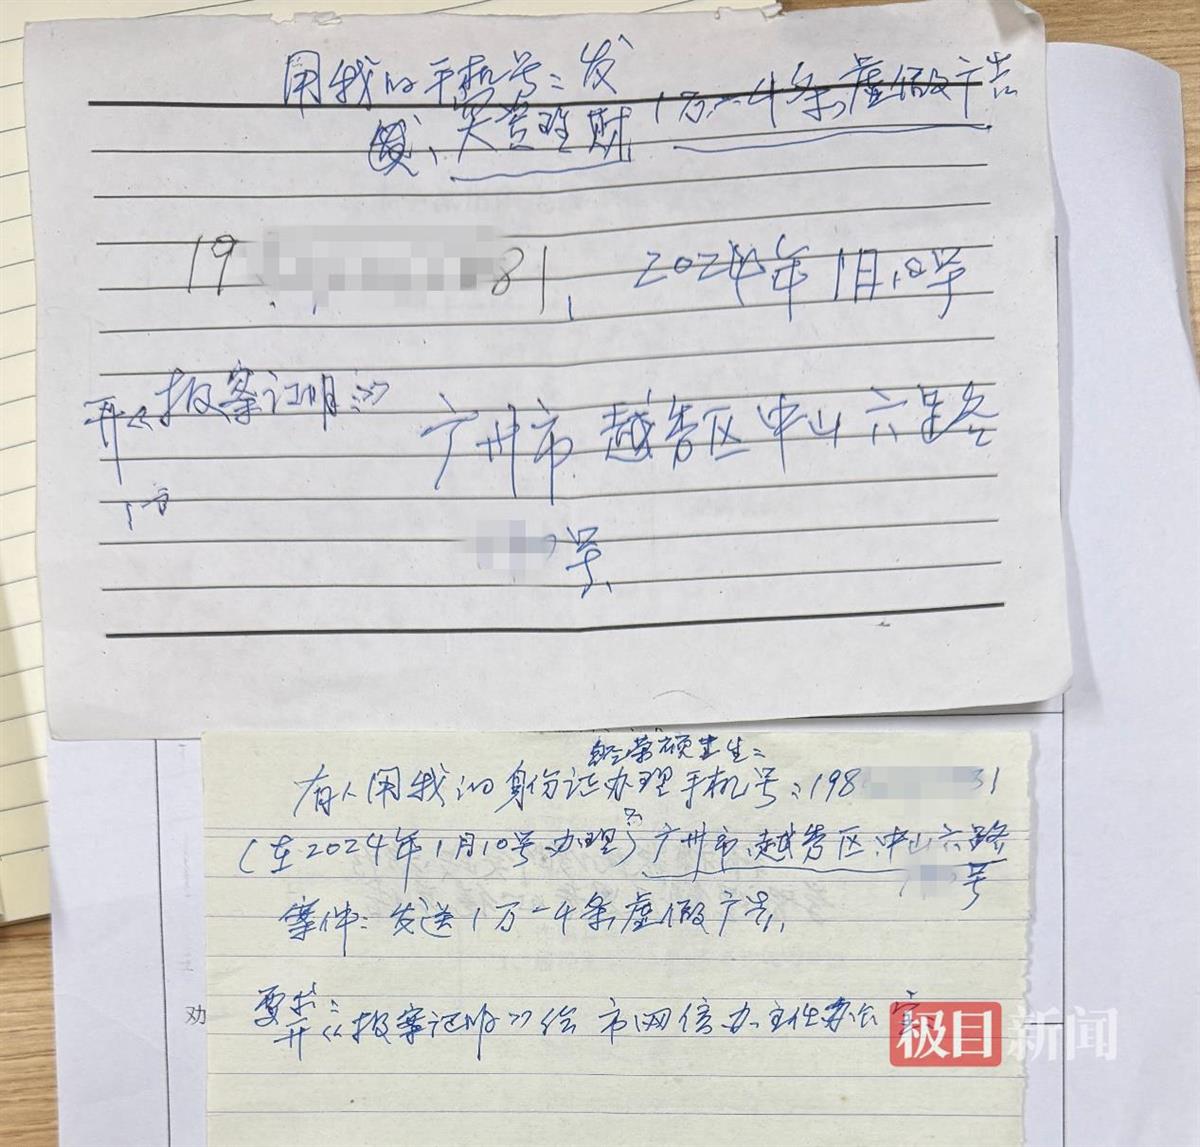 用我的手机号:发
1万一4条虚假广告
买卖理财
19 81, 2024年1月10号
开《报案证明》 广州市越秀区中山六路
市
号
经营硕士生:
有人用我的身份证办理手机号:198 31
(在2024年1月10号办理) 广州市越秀区中山六路
号
案件:发送1万一4条虚假广告,
要求:
开《报案证明》给市网信办主任办公室
劝
极目新闻